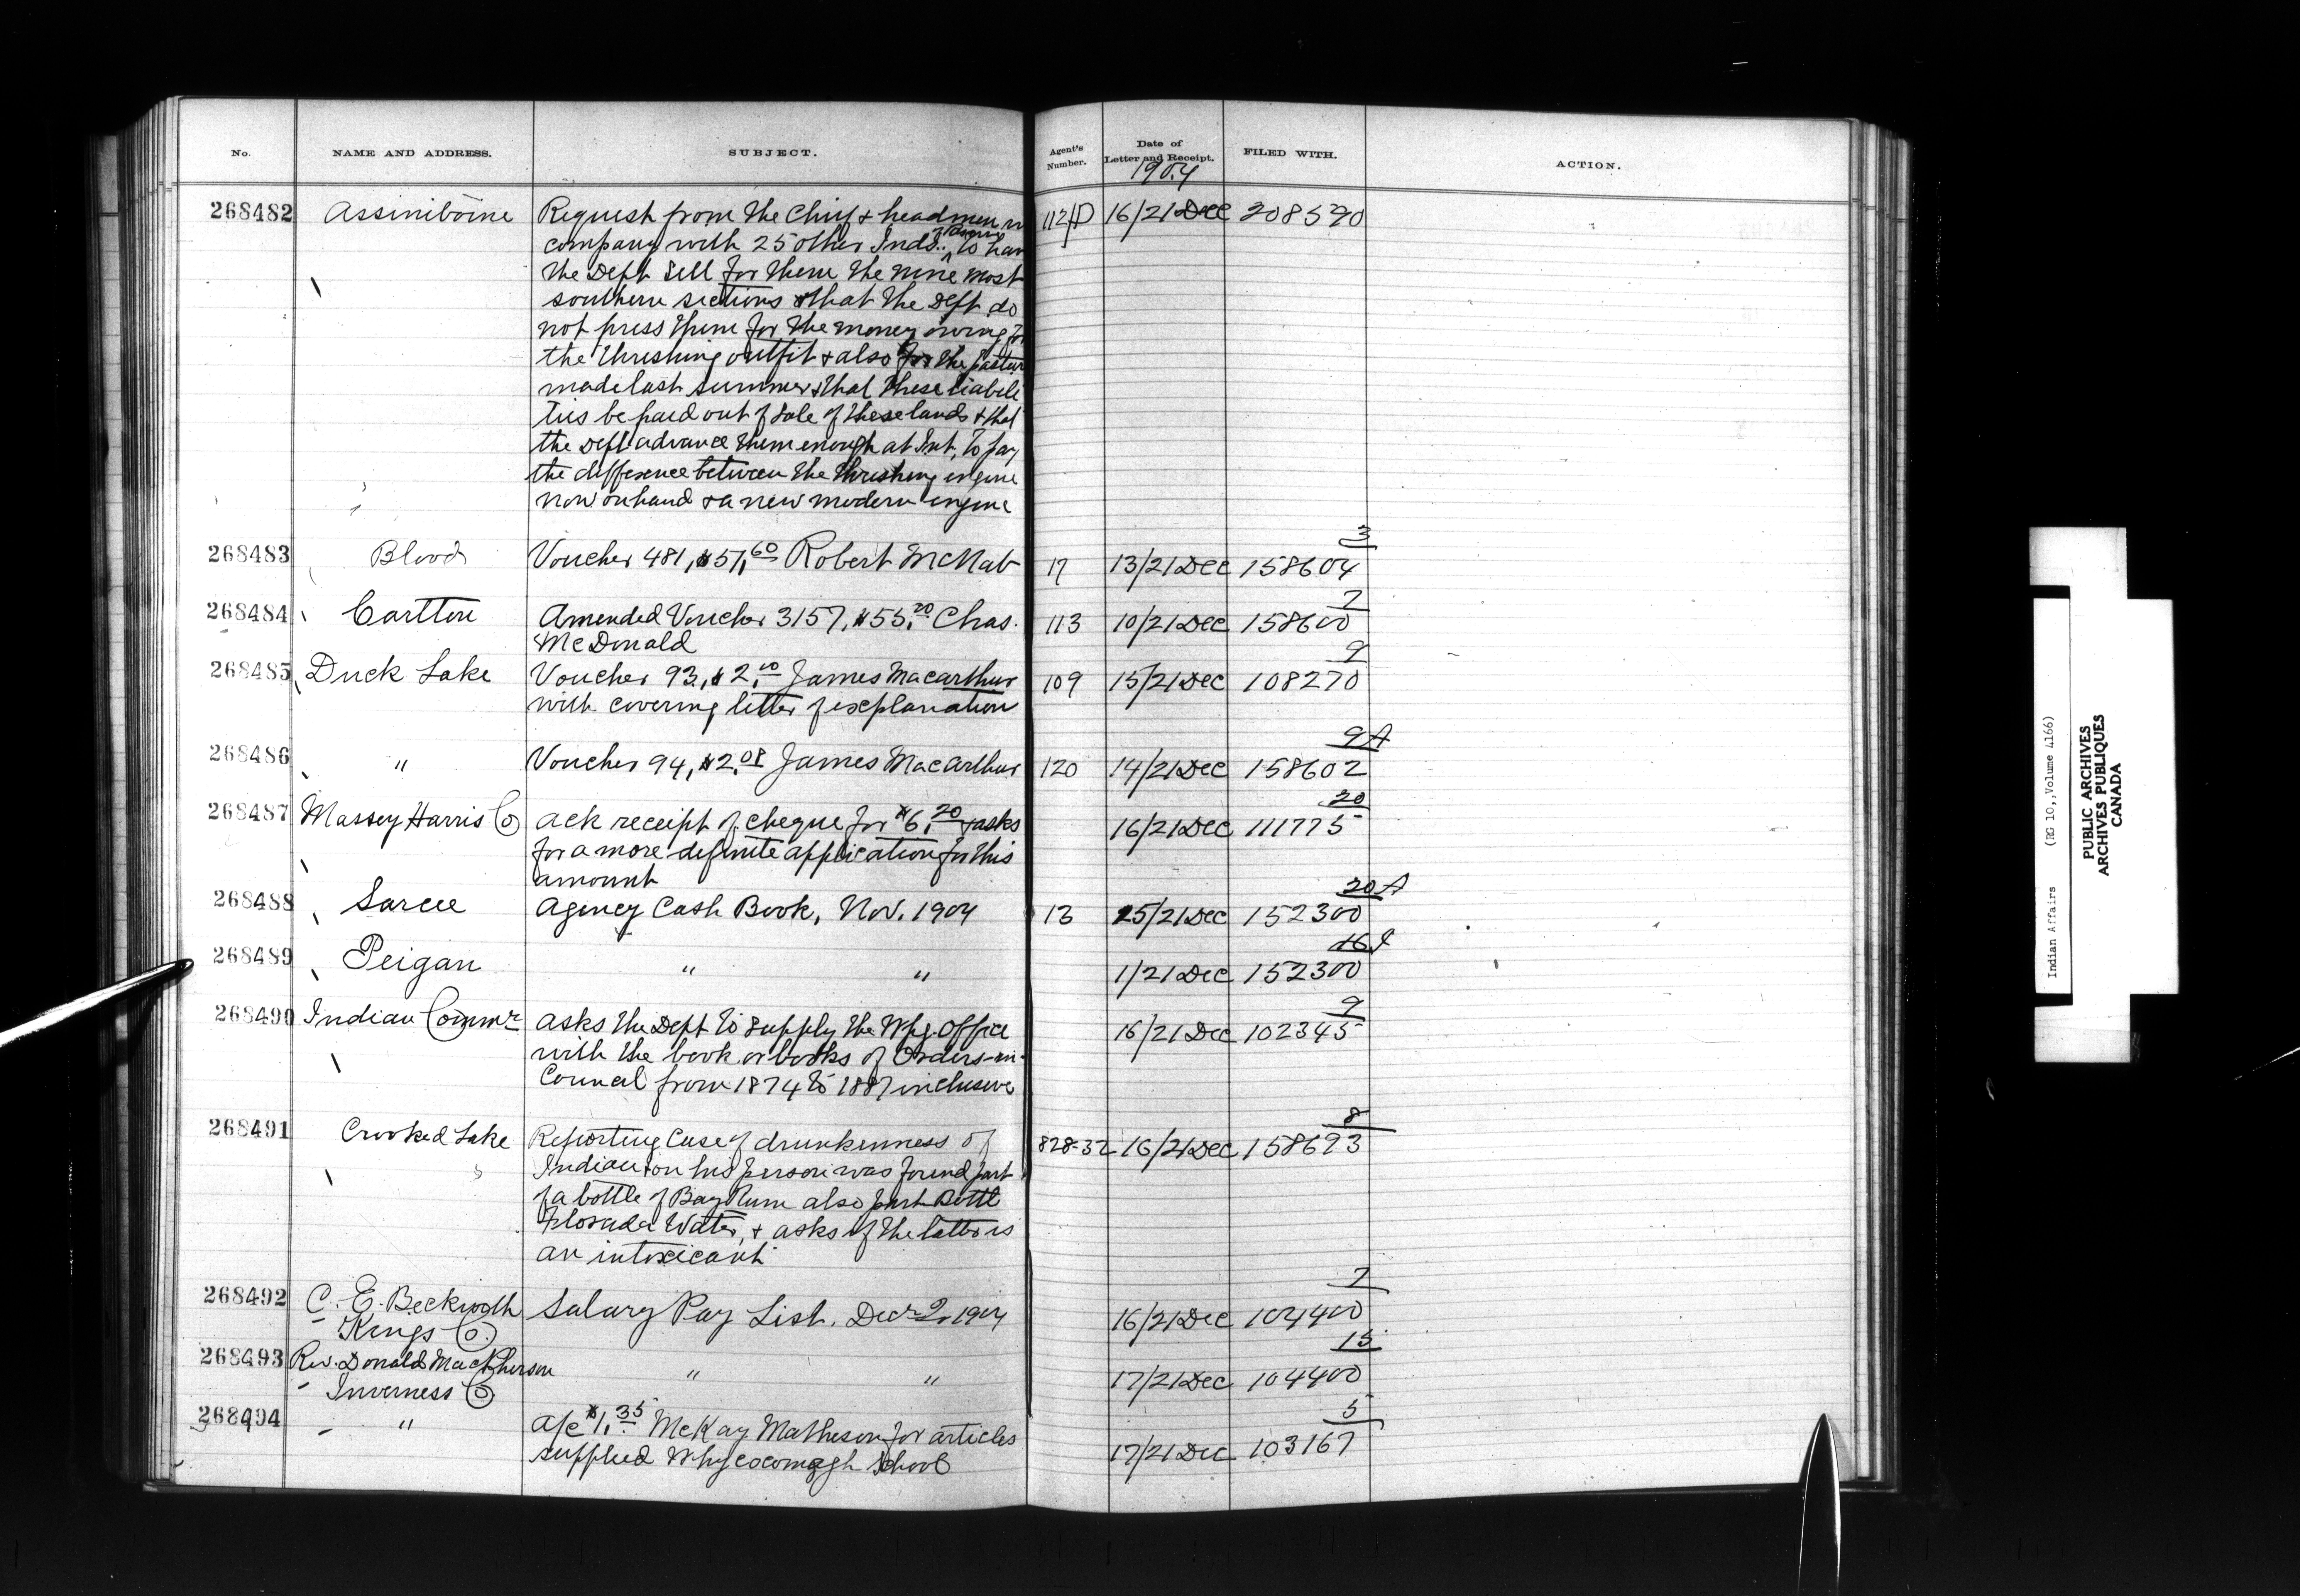 No. NAME AND ADDRESS. SUBJECT. Agent's Number. Date of Letter and Receipt. FILED WITH. ACTION.
1904
268482 Assiniboine Request from the Chief & headmen in 112/D 16/21 Dec 208590
company with 25 other Inds. to have
the Dept sell for them the nine most
southern sections & that the Dept do
not press them for the money owing for
the threshing outfit & also for the pasture
made last summer & that these liabili
ties be paid out of sale of these lands & that
the Dept advance them enough at Int. to pay
the difference between the threshing engine
now on hand & a new modern engine
268483 Blood Voucher 481, $51.60 Robert McNab 17 13/21 Dec 158604
3
268484 Carlton Amended Voucher 3157, $55.20 Chas. 113 10/21 Dec 158600
7
McDonald
268485 Duck Lake Voucher 93, $2.10 James Macarthur 109 15/21 Dec 108270
9
with covering letter of explanation
268486 " Voucher 94, $2.08 James Macarthur 120 14/21 Dec 158602
9A
268487 Massey Harris Co Ack receipt of cheque for $6.20 & asks 16/21 Dec 111775
20
for a more definite application for this
amount
268488 Sarcee Agency Cash Book, Nov. 1904 13 15/21 Dec 152300
20A
268489 Peigan " " 1/21 Dec 152300
268490 Indian Commr Asks the Dept to supply the Wpg. Office 16/21 Dec 102345
9
with the book or books of Orders-in-
Council from 1874 to 1887 inclusive
268491 Crooked Lake Reporting Case of drunkenness of 828-32 16/21 Dec 158693
8
Indian & on his person was found part
of a bottle of Bay Rum also part Bottle
Florada Water, & asks if the latter is
an intoxicant
268492 C. E. Beckwith Salary Pay List, Decr 2, 1904 16/21 Dec 104400
7
Kings Co.
268493 Rev. Donald MacPherson " " 17/21 Dec 104400
15
Inverness Co
268494 " A/c $1.35 McKay Matheson for articles 17/21 Dec 103167
5
supplied Whycocomagh School
Indian Affairs (RG 10, Volume 4166)
PUBLIC ARCHIVES
ARCHIVES PUBLIQUES
CANADA